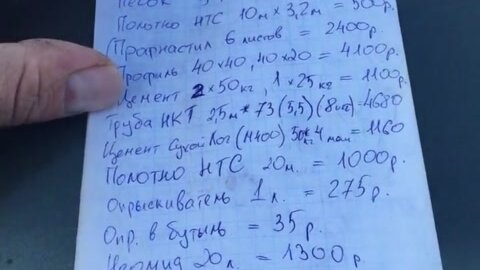 Песок
Полотно НТС 10м х 3,2м = 500р.
Профнастил 6 листов = 2400р.
Профиль 40х40, 40х20 = 4100р.
Цемент 2х50кг, 1х25кг = 1100р.
Труба НКТ 2,5м * 73 (5,5) (8шт) = 4680
Цемент Сухой Лог (М400) 50кг * 4 меш = 1160
Полотно НТС 20м = 1000р.
Опрыскиватель 1л. = 275р.
Опр. в бутыль = 35р.
20л. = 1300р.